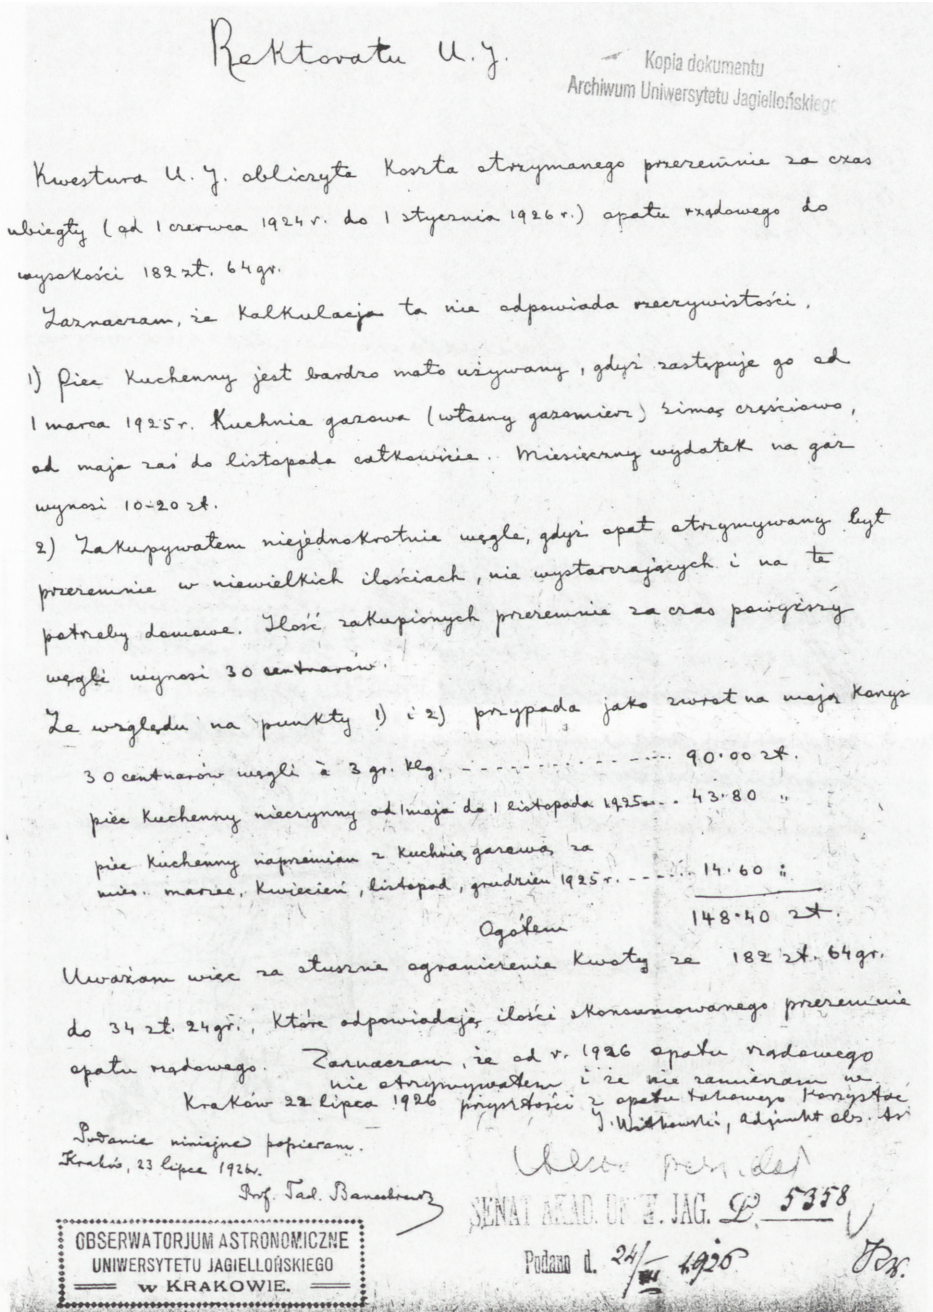 Rektoratu U. J.
Kopia dokumentu
Archiwum Uniwersytetu Jagiellońskiego
Kwestura U. J. obliczyła koszta otrzymanego przezemnie za czas
ubiegły (od 1 czerwca 1924 r. do 1 stycznia 1926 r.) opału rządowego do
wysokości 182 zł. 64 gr.
Zaznaczam, że kalkulacja ta nie odpowiada rzeczywistości.
1) Piec kuchenny jest bardzo mało używany, gdyż zastępuje go od
1 marca 1925 r. kuchnia gazowa (własny gazomierz) zimą częściowo,
od maja zaś do listopada całkowicie. Miesięczny wydatek na gaz
wynosi 10-20 zł.
2) Zakupywałem niejednokrotnie węgle, gdyż opał otrzymywany był
przezemnie w niewielkich ilościach, nie wystarczających i na te
potrzeby domowe. Ilość zakupionych przezemnie za czas powyższy
węgli wynosi 30 centnarów.
Ze względu na punkty 1) i 2) przypada jako zwrot na moją korzyś
30 centnarów węgli à 3 gr. klg. - - - - - - - - - - - - 90.00 zł.
piec kuchenny nieczynny od 1 maja do 1 listopada 1925 r. - - 43.80 "
piec kuchenny naprzemian z kuchnią gazową za
mies. marzec, kwiecień, listopad, grudzień 1925 r. - - - - - 14.60 "
Ogółem 148.40 zł.
Uważam więc za słuszne ograniczenia kwoty ze 182 zł. 64 gr.
do 34 zł. 24 gr., które odpowiadają ilości skonsumowanego przezemnie
opału rządowego. Zaznaczam, że od r. 1926 opału rządowego
nie otrzymywałem i że nie zamierzam w
Kraków 22 lipca 1926 przyszłości z opału takowego korzystać
J. Witkowski, adjunkt obs. As
Podanie niniejsze popieram.
Kraków, 23 lipca 1926 r.
Prof. Tad. Banachiewicz
SENAT AKAD. UNIW. JAG. L. 5358
Podano d. 24/VII 1926
OBSERWATORJUM ASTRONOMICZNE
UNIWERSYTETU JAGIELLOŃSKIEGO
w KRAKOWIE.